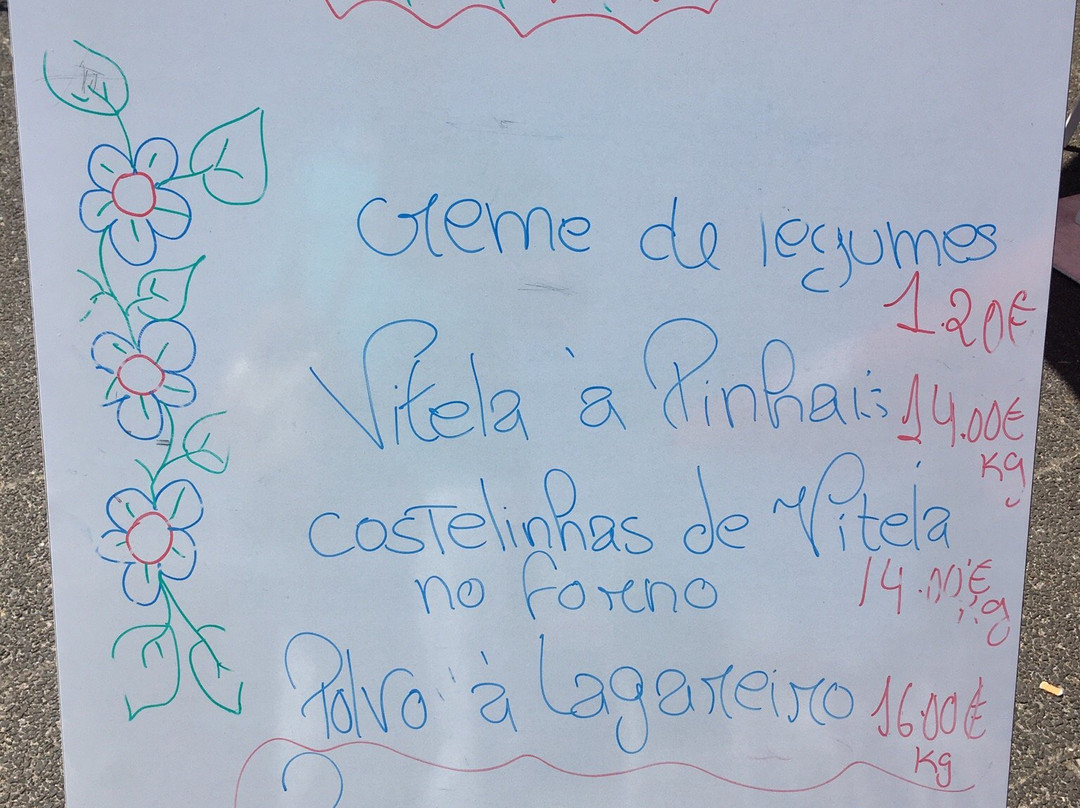 Creme de legumes
1.20€
Vitela à Pinhais 14.00€
Kg
costelinhas de Vitela
no forno 14.00€
Kg
Polvo à Lagareiro 16.00€
Kg